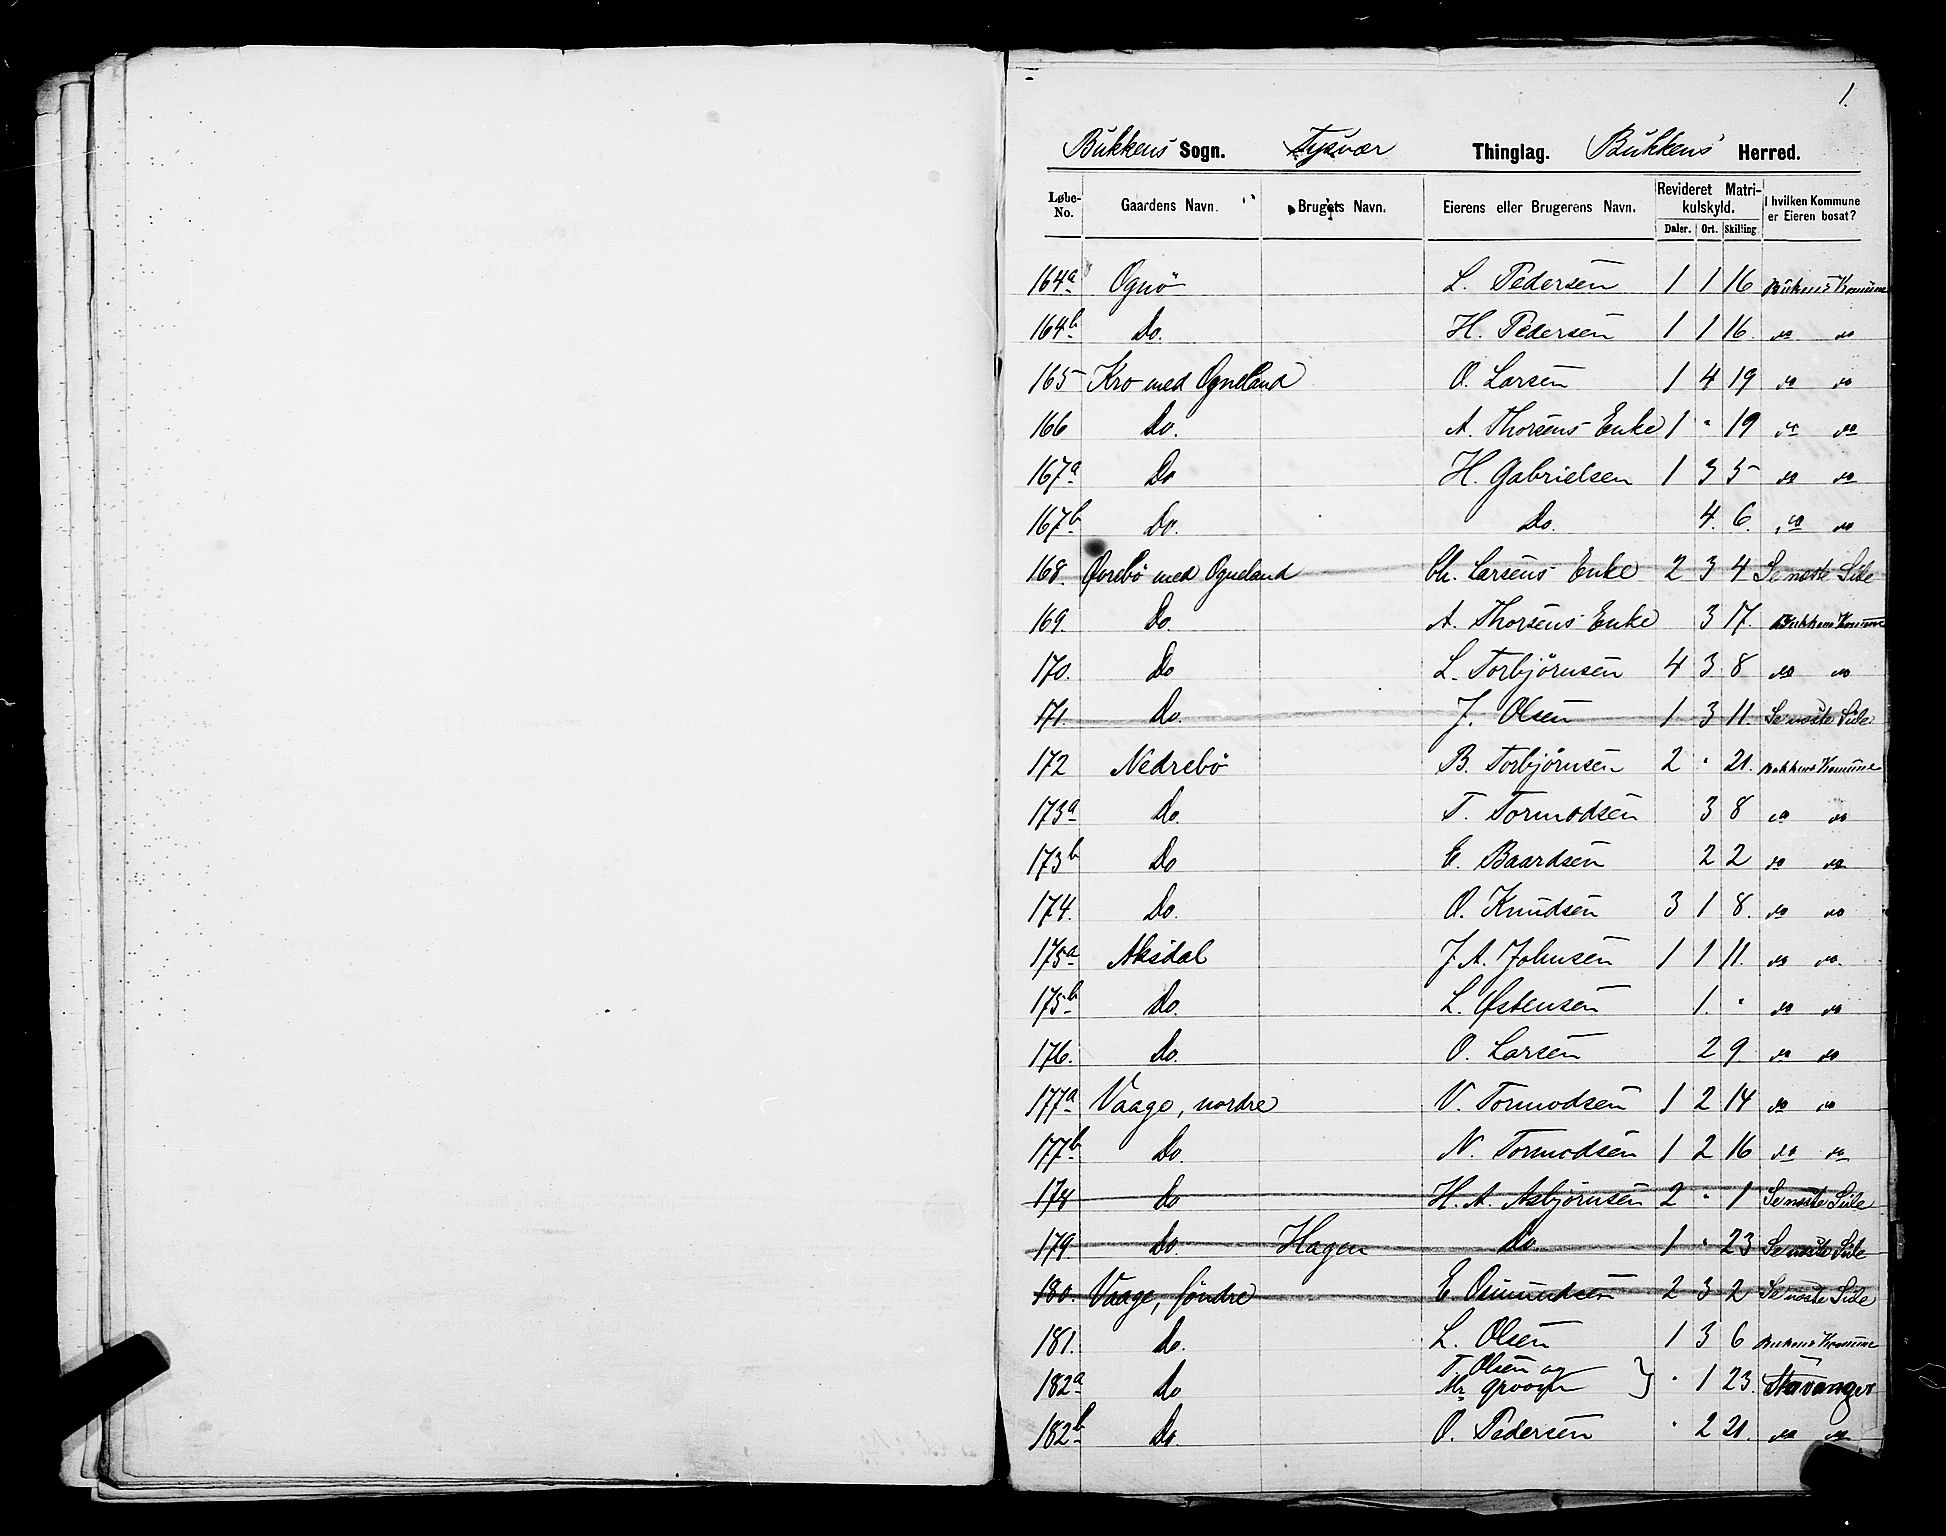 1.
Bukkens Sogn. Tysvær Thinglag. Bukkens Herred.
Løbe-No. Gaardens Navn. Brugets Navn. Eierens eller Brugerens Navn. Revideret Matrikulskyld. I hvilken Kommune er Eieren bosat?
Daler. Ort. Skilling
164a Ognö L. Pedersen 1 1 16 Bukkens Komune
164b Do. H. Pedersen 1 1 16. do do
165 Kro med Ogneland O. Larsen 1 4 19 do do
166 Do. A. Thorsens Enke 1 " 19 do do
167a Do H. Gabrielsen 1 3 5 do do
167b Do. Do. 4. 6. do do
168. Øvrebö med Ogneland Ch. Larsens Enke 2 3 4 Se næste Side
169. Do. A. Thorsens Enke 3 17. Bukkens Komune
170. Do L. Torbjörnsen 4 3 8 do do
171. Do. J. Olsen 1 3 11. Se næste Side
172 Nedrebö B. Torbjörnsen 2 " 21. Bukkens Komune
173a Do. T. Tormodsen 3 8 do do
173b Do E. Baardsen 2 2 do do
174. Do. O. Knudsen 3 1 8. do do
175a Aksdal J. A. Johnsen 1 1 11. do do.
175b Do. L. Østensen 1. " do do
176. Do. O. Larsen 2 9. do do
177a Vaage, nordre V. Tormodsen 1 2 14 do do
177b Do. N. Tormodsen 1 2 16 do do
178 Do H. A. Asbjörnsen 2 " 1 Se næste Side
179. Do. Hagen Do. 1 " 23 Se næste Side
180. Vaage, söndre E. Osmundsen 2 3 2 Se næste Side
181. Do. L. Olsen 1 3 6 Bukkens Komune
182a Do T. Olsen og } " 1 23. Stavanger
182b Do. O. Pedersen " 2 21. do do